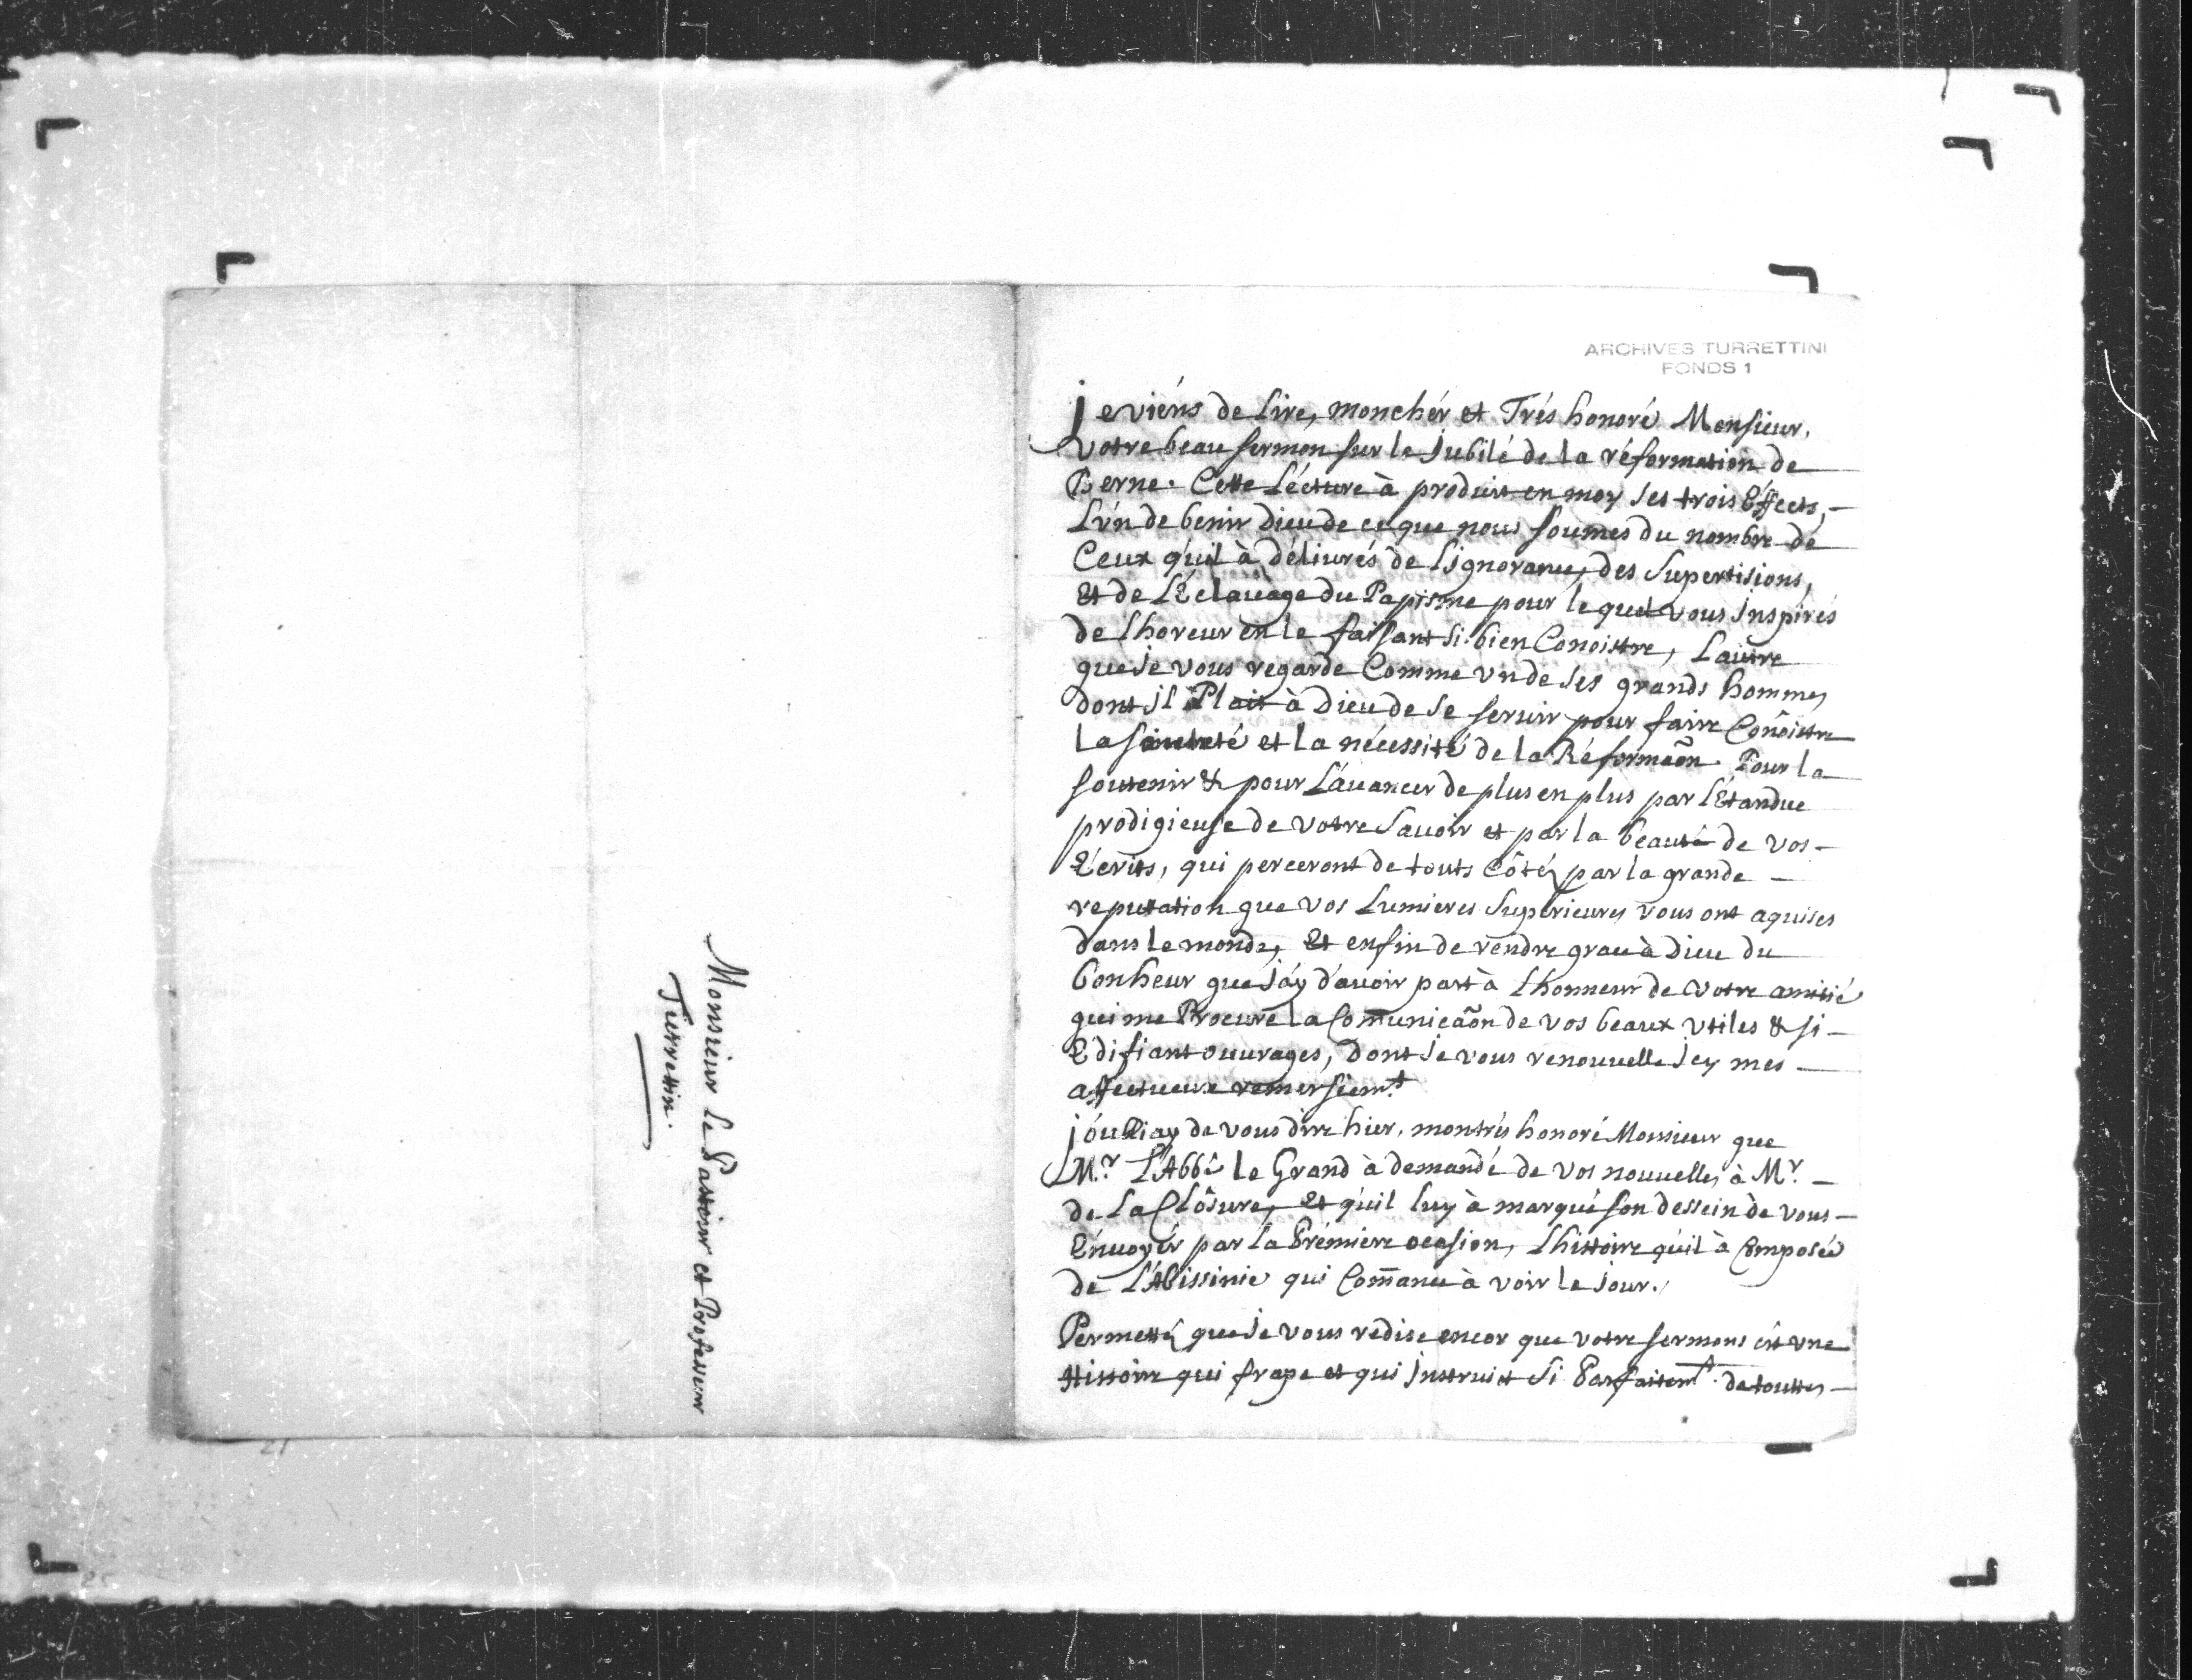 Monsieur le Pasteur et Professeur
Turrettin.
ARCHIVES TURRETTINI
FONDS 1
Je viéns de Lire, mon chér et Trés honoré Monsieur,
votre beau sermon sur le Jubilé de la réformation de
Berne. Cette Lécture à produit en moy ses trois Effects,
L'un de benir Dieu de ce que nous soumes du nombre de
Ceux qu'il à délivrés de Lignorance, des Supertisions,
Et de L'Eclavage du Papisme pour lequel vous Inspirés
de Lhoreur en le faisant si bien Conoistre, Lautre
que je vous regarde Comme un de ses grands hommes
dont jl Plait à Dieu de se servir pour faire Conoistre
La Sainteté et la nécessité de la Réformaõn. Pour la
soutenir & pour L'avancer de plus en plus par L'Etandue
prodigieuse de votre Savoir et par la beauté de vos
Ecrits, qui perceront de touts Côtés par la grande
reputation que vos Lumieres Superieures vous ont aquises
dans le monde, Et enfin de rendre grace à Dieu du
bonheur que j'áy d'avoir part à Lhonneur de votre amitié
qui me Procure La Com̃unicaõn de vos beaux utiles & si
Edifiant ouvrages, dont je vous renouvelle Jcy mes
affectueux remersiemt
J'oubliay de vous dire hier, mon trés honoré Monsieur que
Mr. L'Abbé le Grand à demandé de vos nouvelles à Mr.
de La Clôsure, et qu'il luy à marqué son dessein de vous
Envoyér par la Prémiere ocasion, Lhistoire qu'il à Composée
de L'Abissinie qui Com̃ance à voir le jour.
Permettés que je vous redise encor que votre sermons ést une
Histoire qui frape et qui Instruit si Parfaitemt. de touttes